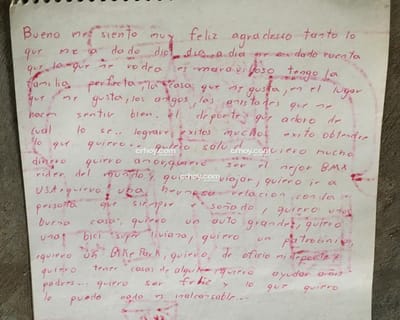 Bueno me siento muy feliz agradesco tanto lo
que me a dado dio dia a dia me e dado cuenta
que lo que me rodea es maravilloso tengo la
familia perfecta la casa que me gusta, en el lugar
que me gusta, los amigos, las amistades que me
hacen sentir bien. el deporte que adoro de
cual lo se.. lograre exitos mucho exito obtendre
lo que quiero. quiero salud quiero mucho
crhoy.com crhoy.com crhoy.com
dinero quiero amor quiero ser el mejor BMX
rider del mundo, quiero viajar, quiero ir a
USA quiero una hermosa relacion con la
persona que siempre e soñado, quiero una
buena casa, quiero un auto grande, quiero
una bici super liviana, quiero un patrocinio
quiero un Bike Park, quiero, de oficio mi deporte
quiero tener casas de alquiler quiero ayudar a mis
padres.. quiero ser feliz y lo que quiero
lo puedo todo es inalcansable...
crhoy.com